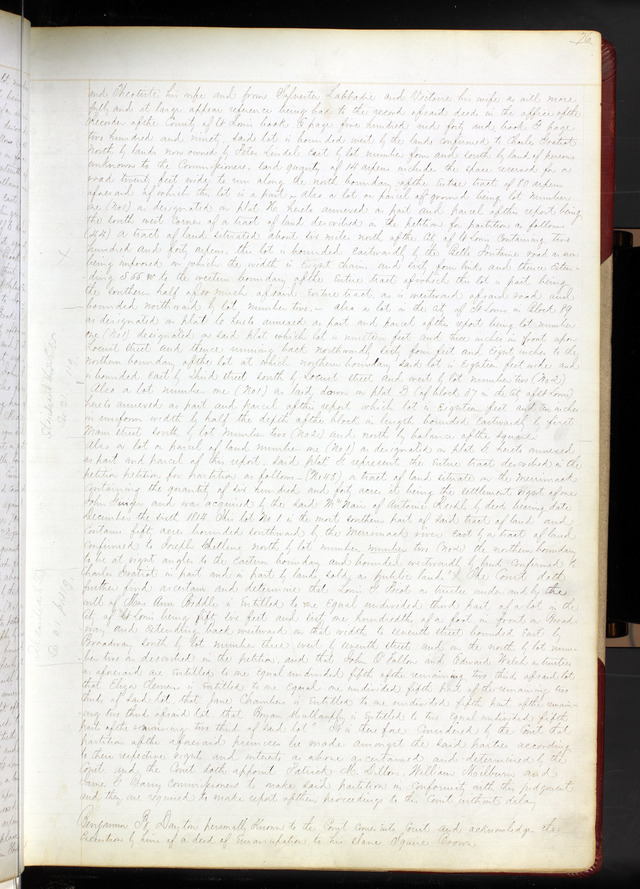 76
and his wife and from Sylvester Labbadie and Victoire his wife as will more
fully and at large appear reference being had to the record of said deed in the office of the
Recorder of the County of St Louis book page five hundred and forty and book page
two hundred and ninety, said lot is bounded west by the lands confirmed to Charles Gratiot
North by land now owned by Peter Lindell East by lot number four and south by land of persons
unknown to the Commissioners. said quantity of 14 arpens include the space reserved for a
road twenty feet wide to run along the north boundary of the entire tract of 80 arpens
aforesaid of which the lot is a part, also a lot or parcel of ground being lot number
one (No1) as designated on plat hereto annexed as part and parcel of this report being
the south west corner of a tract of land described in the petition for partition as follows
(44) A tract of land situated about two miles north of the City of St Louis Containing two
hundred and forty arpens, the lot is bounded Eastwardly by the Belle Fontaine road as now
being improved on which the width is eight chains and sixty four links and thence exten-
ding S 55 W to the western boundary of the entire tract of which this lot is part being
the southern half of so much of said Entire tract as is westward of said road and
bounded northward by lot number two, — also a lot in the City of St Louis in Block 19
as designated on plat hereto annexed as part and parcel of this report being lot number
one (No1) designated on said plat which lot is nineteen feet and three inches in front upon
Locust street and thence running back northwardly sixty four feet and eight inches to the
northern boundary of the lot at which northern boundary said lot is eighteen feet wide and
is bounded east by third street south by Locust street and west by lot number two (No2)
Also a lot number one (No1) as laid down on plat D (of block 57 in the City of St Louis)
hereto annexed as part and parcel of this report which lot is Eighteen feet and inches
in uniform width by half the depth of the block in length bounded Eastwardly by first
Main street south by lot number two (No2) and north by balance of the square
Also a lot or parcel of land number one (No1) as designated on plat hereto annexed
as part and parcel of this report, said plat to represent the entire tract described in the
petition petition for partition as follows — (No 45) a tract of land situate on the Merrimack
containing the quantity of six hundred and forty acres it being the Settlement Right of one
John and was acquired by the said McNair of Antoine by deed bearing date
December the sixth 1814 This lot No 1 is the most southern part of said tract of land and
contains fifty acres bounded southward by the Merrimack river East by a tract of land
confirmed to Joseph north by lot number number two (No2) the northern boundary
to be at right angles to the Eastern boundary and bounded westwardly by land confirmed to
Charles Gratiot in part and in part by lands sold as public lands. & The Court doth
further find ascertain and determine that Louis A Picot as trustee under and by the
will of Mrs Ann Biddle is entitled to one Equal undivided third part of a lot in the
city of St Louis being fifty five feet and one hundredth of a foot in front on Broad
way and extending back westward on that width to seventh street bounded East by
Broadway south by lot number three west by seventh street and on the north by lot num-
ber two as described in the petition, and that John O Fallon and Edward Walsh as trustees
as aforesaid are entitled to one equal undivided fifth of the remaining two third of said lot
that Eliza Clemens is entitled to one equal undivided fifth part of the remaining two
thirds of said lot, that Jane Chambers is entitled to one undivided fifth part of the remain-
ing two third of said lot that Bryan Mullanphy is entitled to two Equal undivided fifth
parts of the remaining two third of said lot. It is therefore considered by the Court that
partition of the aforesaid premises be made amongst the said parties according
to their respective rights and interests as above ascertained and determined by the
Court and the Court doth appoint Patrick M Dillon, William Milburn and
James G Barry Commissioners to make said partition in conformity with this judgment
and they are required to make report of their proceedings to the Court without delay

Benjamin F Dayton personally known to the Court comes into Court and acknowledges the
Execution by him of a deed of Emancipation to his slave Squire Brown.